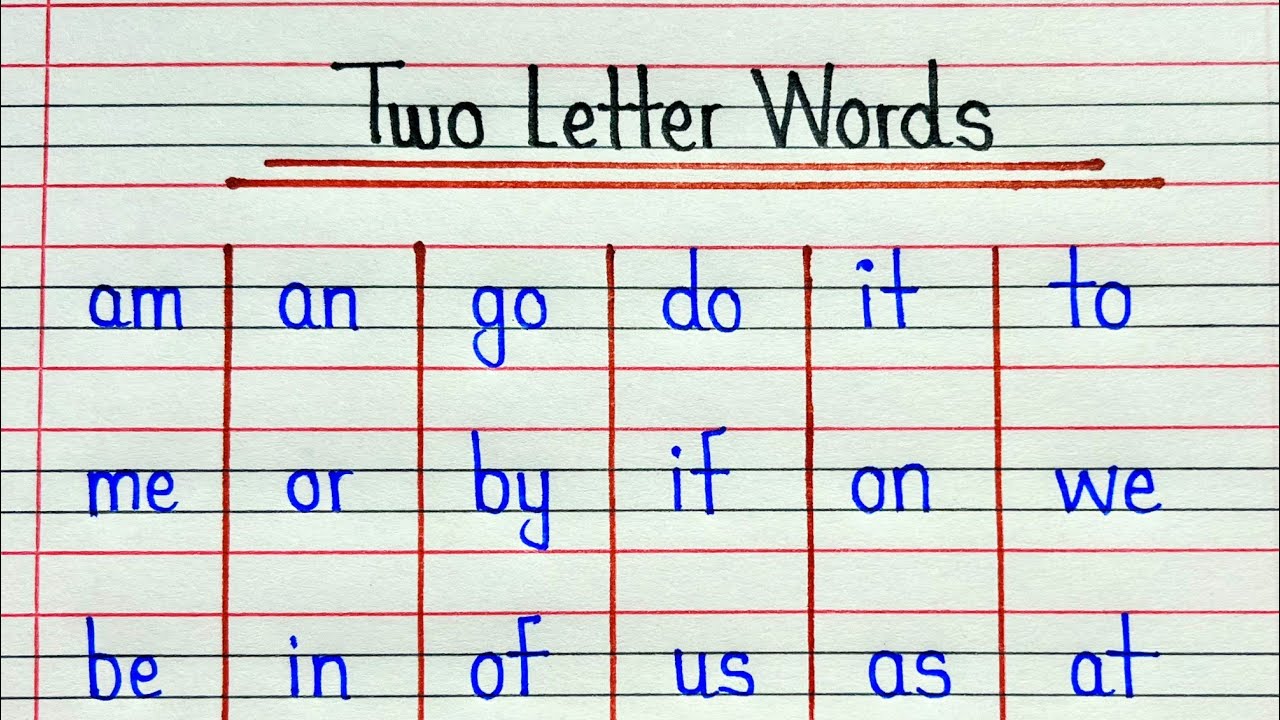 Two Letter Words
am an go do it to
me or by if on we
be in of us as at